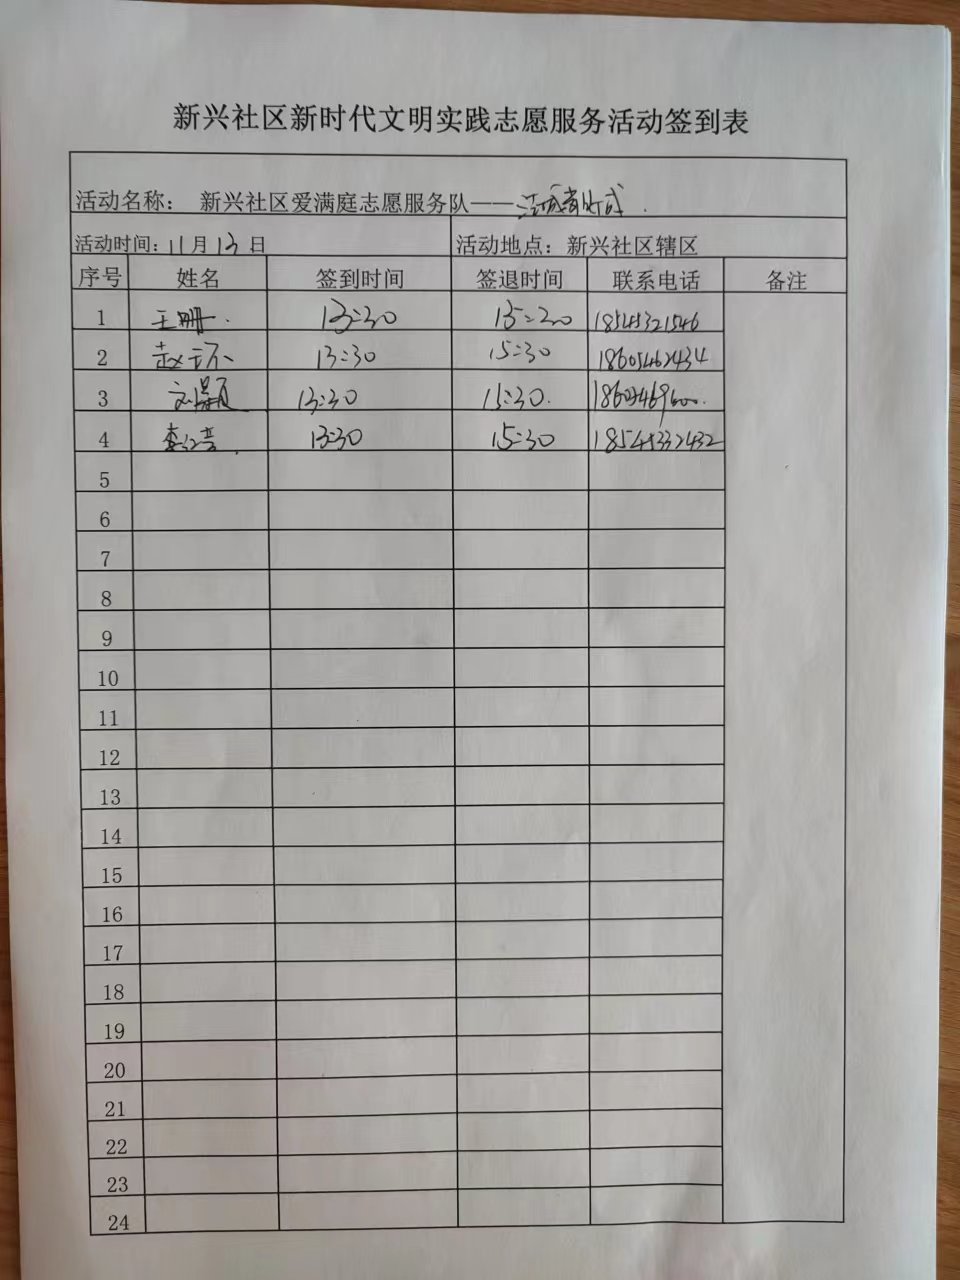 新兴社区新时代文明实践志愿服务活动签到表
活动名称： 新兴社区爱满庭志愿服务队——
活动时间：11月13日 活动地点：新兴社区辖区
序号 姓名 签到时间 签退时间 联系电话 备注
1 王珊 13:30 15:30 18545321546
2 赵 13:30 15:30 18605462434
3 13:30 15:30
4 李 13:30 15:30 18545332432
5
6
7
8
9
10
11
12
13
14
15
16
17
18
19
20
21
22
23
24